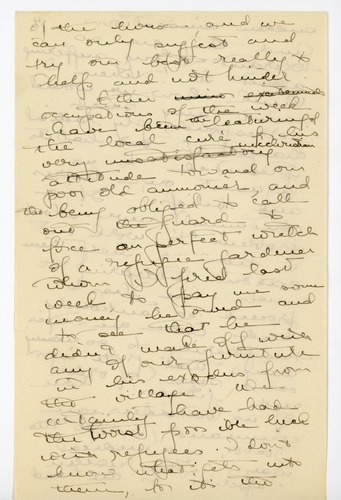 of the hour, and we
can only suggest and
try our best really to
help and not hinder.
Other
occupations of the week
have been the lecturing of
the local curé for his
very unsatisfactory
attitude toward our
poor old aumonier, and
the being obliged to call
out the guard to
force a perfect wretch
of a refugee gardener
whom I fired last
week to pay me some
money he owed and
to see that he
didn't make off with
any of our furniture
in his exodus from
the village. We
certainly have had
the worst possible luck
with refugees. I don't
know what gets into
them, for it's the